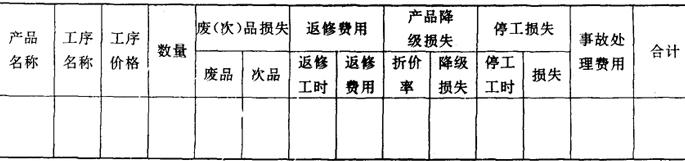 产品名称 工序名称 工序价格 数量 废(次)品损失 返修费用 产品降级损失 停工损失 事故处理费用 合计
废品 次品 返修工时 返修费用 折价率 降级损失 停工工时 损失